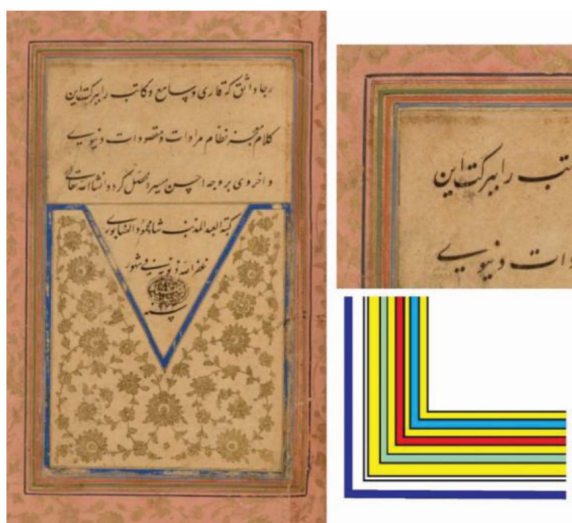 رجا واثق که قاری و سامع و کاتب را ببرکت این
کلام معجز نظام مرادات و مقصودات دنیوی
و اخروی بر وجه احسن میسر و محصل گردد انشاالله تعالی
کتبه العبد المذنب شاه محمود النیشابوری
غفر الله ذنوبه
تب را ببرکت این
دات دنیوی